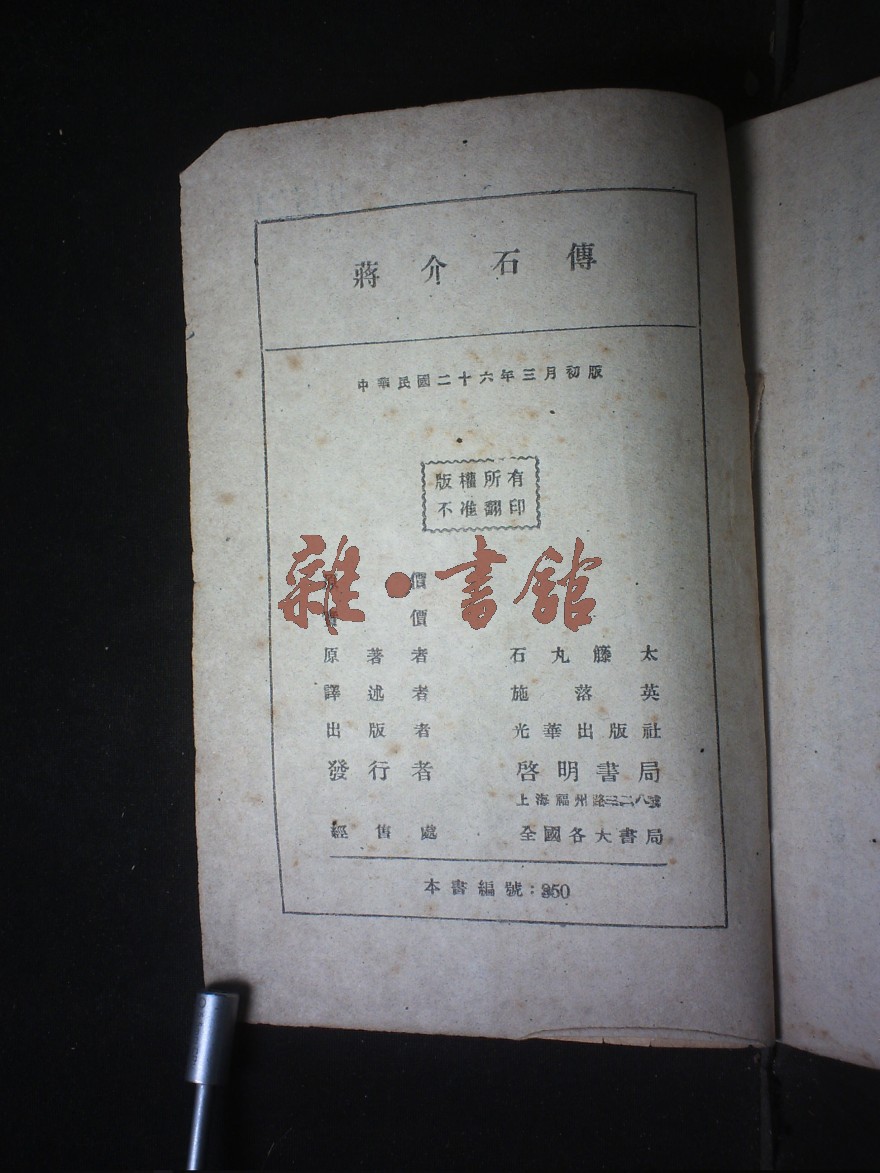 蔣介石傳
中華民國二十六年三月初版
版權所有
不准翻印
雜·書館
價
價
原著者 石丸籐太
譯述者 施落英
出版者 光華出版社
發行者 啓明書局
上海福州路三二八號
經售處 全國各大書局
本書編號:350